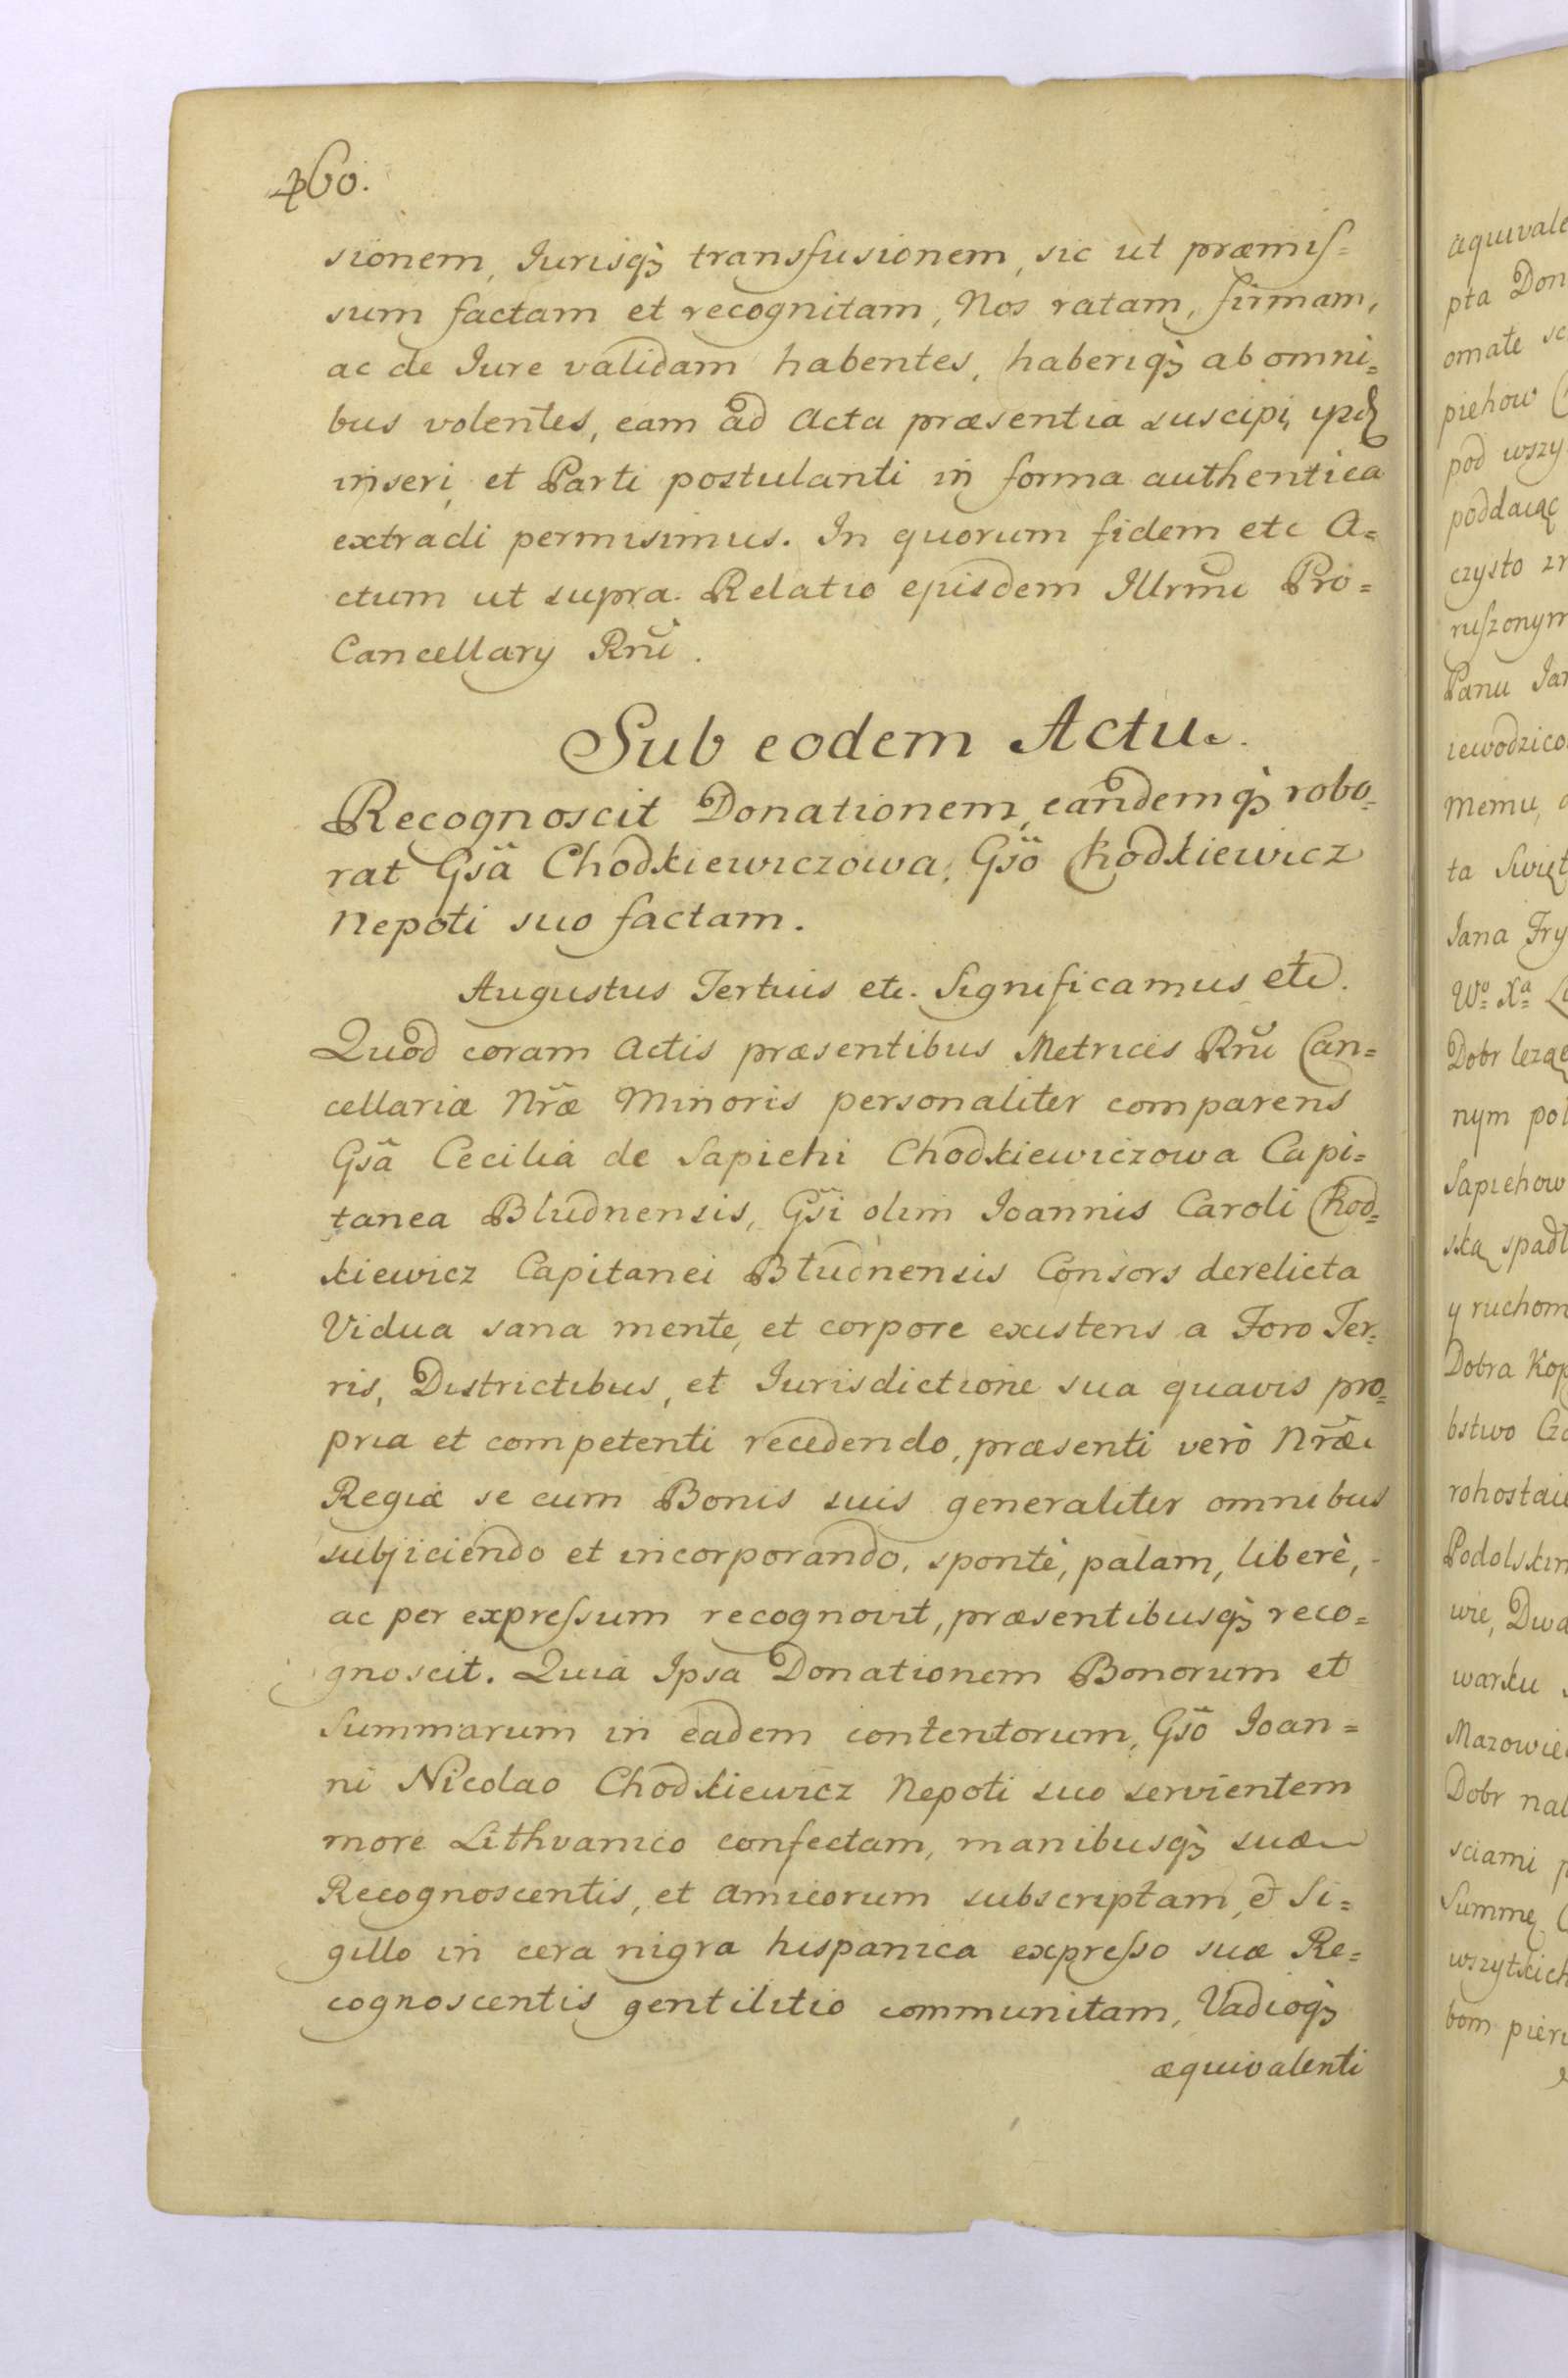 460.
sionem, Jurisq3 transfusionem, sic ut præmiſ=
sum factam et recognitam, Nos ratam, firmam,
ac de Jure validam habentes, haberiq3 ab omni=
bus volentes, eam ad Acta præsentia suscipi,
inseri, et Parti postulanti in forma authentica
extradi permisimus. In quorum fidem etc A=
ctum ut supra. Relatio ejusdem Illrmi Pro=
Cancellary Rnĩ.
Sub eodem Actu.
Recognoscit Donationem, eandemq3 robo=
rat Gsã Chodkiewiczowa, Gsõ Chodkiewicz
Nepoti suo factam.
Augustus Tertius etc. Significamus etc.
Quod coram Actis præsentibus Metricis Rnĩ Can=
cellariæ Nræ Minoris personaliter comparens
Gsã Cecilia de Sapiehi Chodkiewiczowa Capi=
tanea Bludnensis, Gsi olim Joannis Caroli Chod=
kiewicz Capitanei Błudnensis Consors derelicta
Vidua sana mente, et corpore existens a Foro Ter=
ris, Districtibus, et Jurisdictione sua quavis pro=
pria et competenti recedendo, præsenti verò Nræ
Regiæ se cum Bonis suis generaliter omnibus
subjiciendo et incorporando, spontè, palam, liberè,
ac per expreſsum recognovit, præsentibusq3 reco=
gnoscit. Quia Ipsa Donationem Bonorum et
Summarum in eadem contentorum, Gsõ Joan=
ni Nicolao Chodkiewicz Nepoti suo servientem
more Lithvanico confectam, manibusq3 suæ
Recognoscentis, et Amicorum subscriptam, et Si=
gillo in cera nigra hispanica expreſso suæ Re=
cognoscentis gentilitio communitam, Vadioq3
æquivalenti